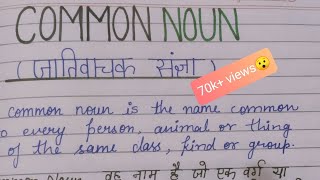 COMMON NOUN
(जातिवाचक संज्ञा)
70k+ views😯
common noun is the name common
to every person, animal or thing
of the same class, kind or group.
वह नाम है जो एक वर्ग या